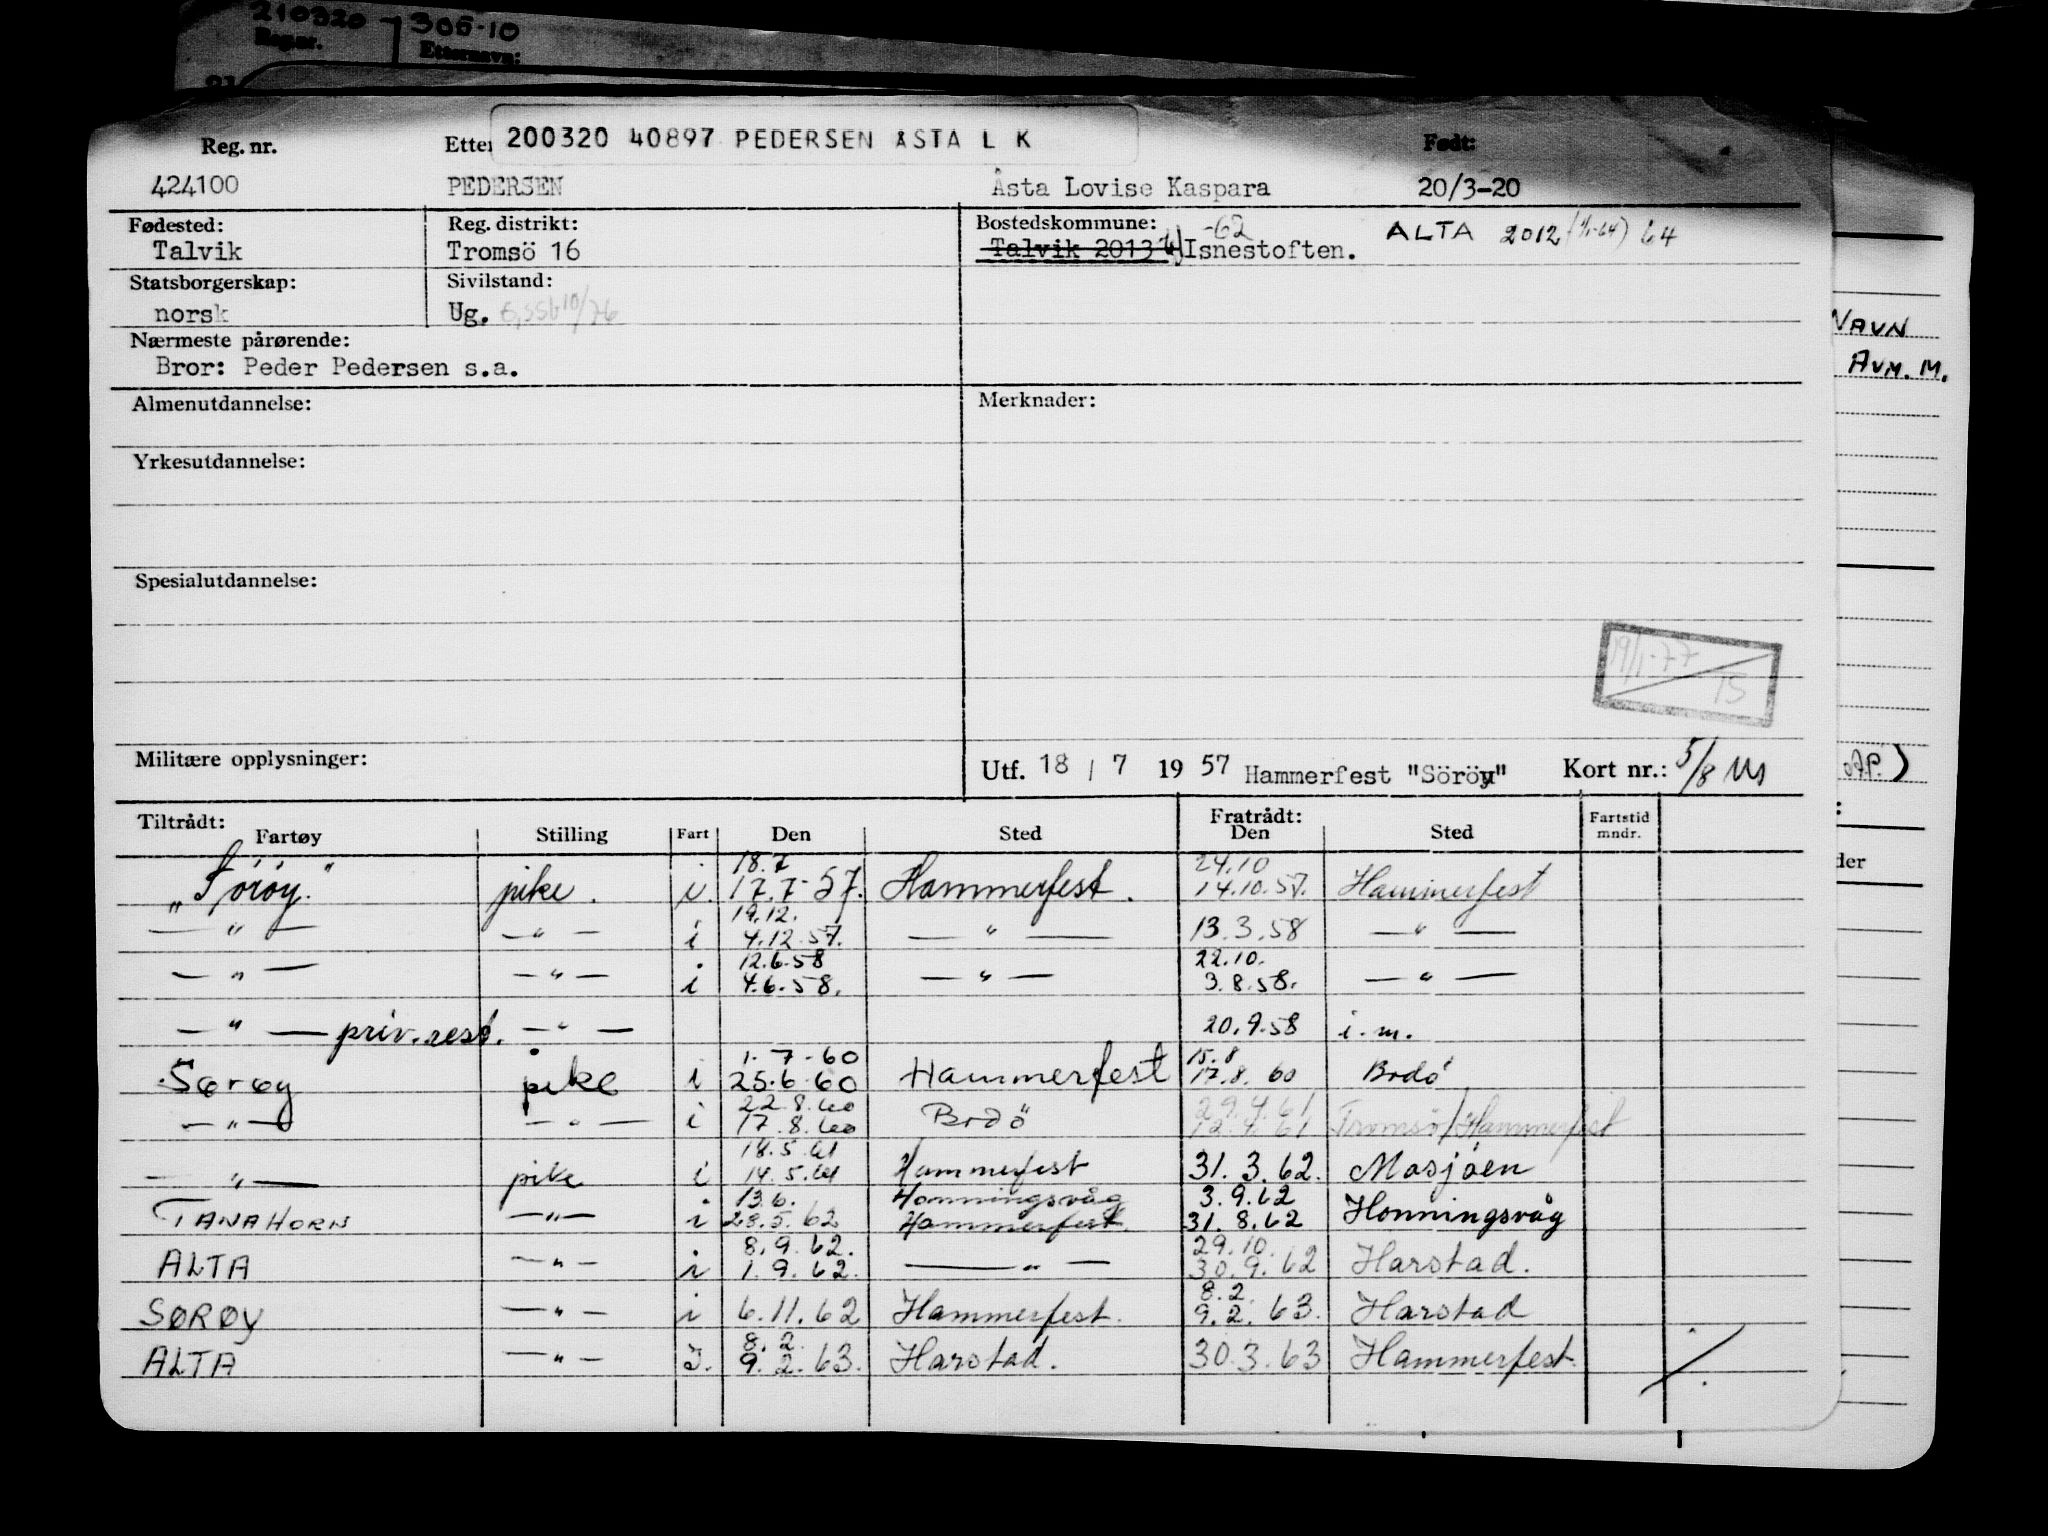 210320 305-10
Reg.nr. Etternavn:
Reg. nr. Etter 200320 40897 PEDERSEN ÅSTA L K Født:
424100 PEDERSEN Åsta Lovise Kaspara 20/3-20
Fødested: Reg. distrikt: Bostedskommune: -62
Talvik Tromsö 16 Talvik 2013 Isnestoften. ALTA 2012 64
Statsborgerskap: Sivilstand:
norsk Ug.
Nærmeste pårørende:
Bror: Peder Pedersen s.a.
Almenutdannelse: Merknader:
Yrkesutdannelse:
Spesialutdannelse:
19/1-77
15
Militære opplysninger: Utf. 18 / 7 1957 Hammerfest "Söröy" Kort nr.: 5/8
Tiltrådt: Fratrådt: Fartstid
Fartøy Stilling Fart Den Sted Den Sted mndr.
18.7 24.10
„Søröy." pike. i. 17.7-57. Hammerfest. 14.10.57. Hammerfest
19.12.
— " — — " — i 4.12.57. — " — 13.3.58 — " —
12.6.58 22.10.
— " — — " — i 4.6.58. — " — 3.8.58. — " —
— " — priv.rest. — " — 20.9.58 i.m.
1-7-60 15.8
Sørøy pike i 25.6 60 Hammerfest 17.8.60 Bodö
22.8.60 29.4.61
— " — — " — i 17.8.60 Bodö 12.4.61 Tromsø/Hammerfest
18.5.61
— " — pike i 14.5.61 Hammerfest 31.3.62. Mosjøen
13.6. Honningsvåg 3.9.62
TANAHORN — " — i 28.5.62 Hammerfest 31.8.62 Honningsvåg
8.9.62. 29.10.
ALTA — " — i 1.9.62. — " — 30.9.62 Harstad.
8.2.
SØRØY — " — i 6.11.62 Hammerfest. 9.2.63. Harstad
8.2.
ALTA — " — I. 9.2.63. Harstad. 30.3.63 Hammerfest.
NAVN
AVM. M.
der